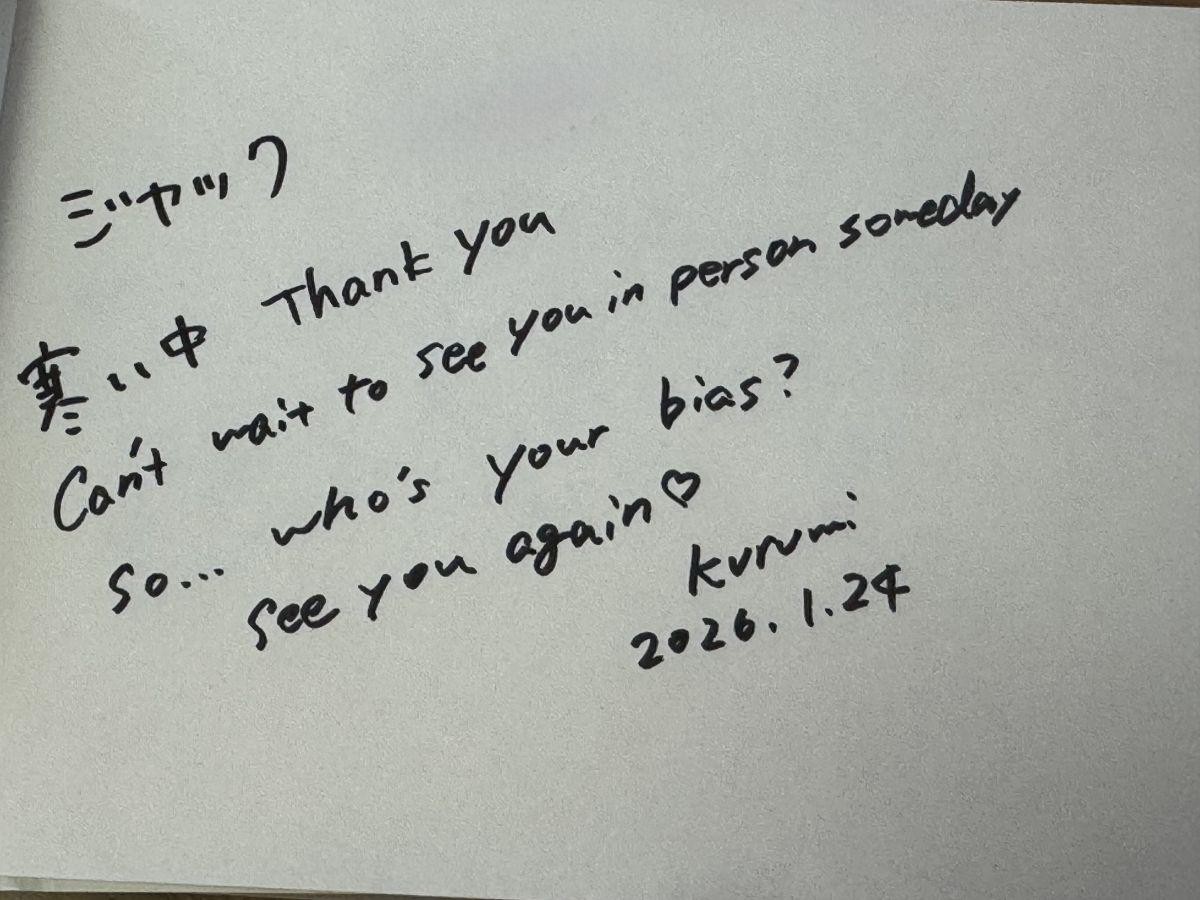 ジャック
寒い中 Thank you
Can't wait to see you in person someday
so... who's your bias?
see you again♡
kurumi
2026.1.24